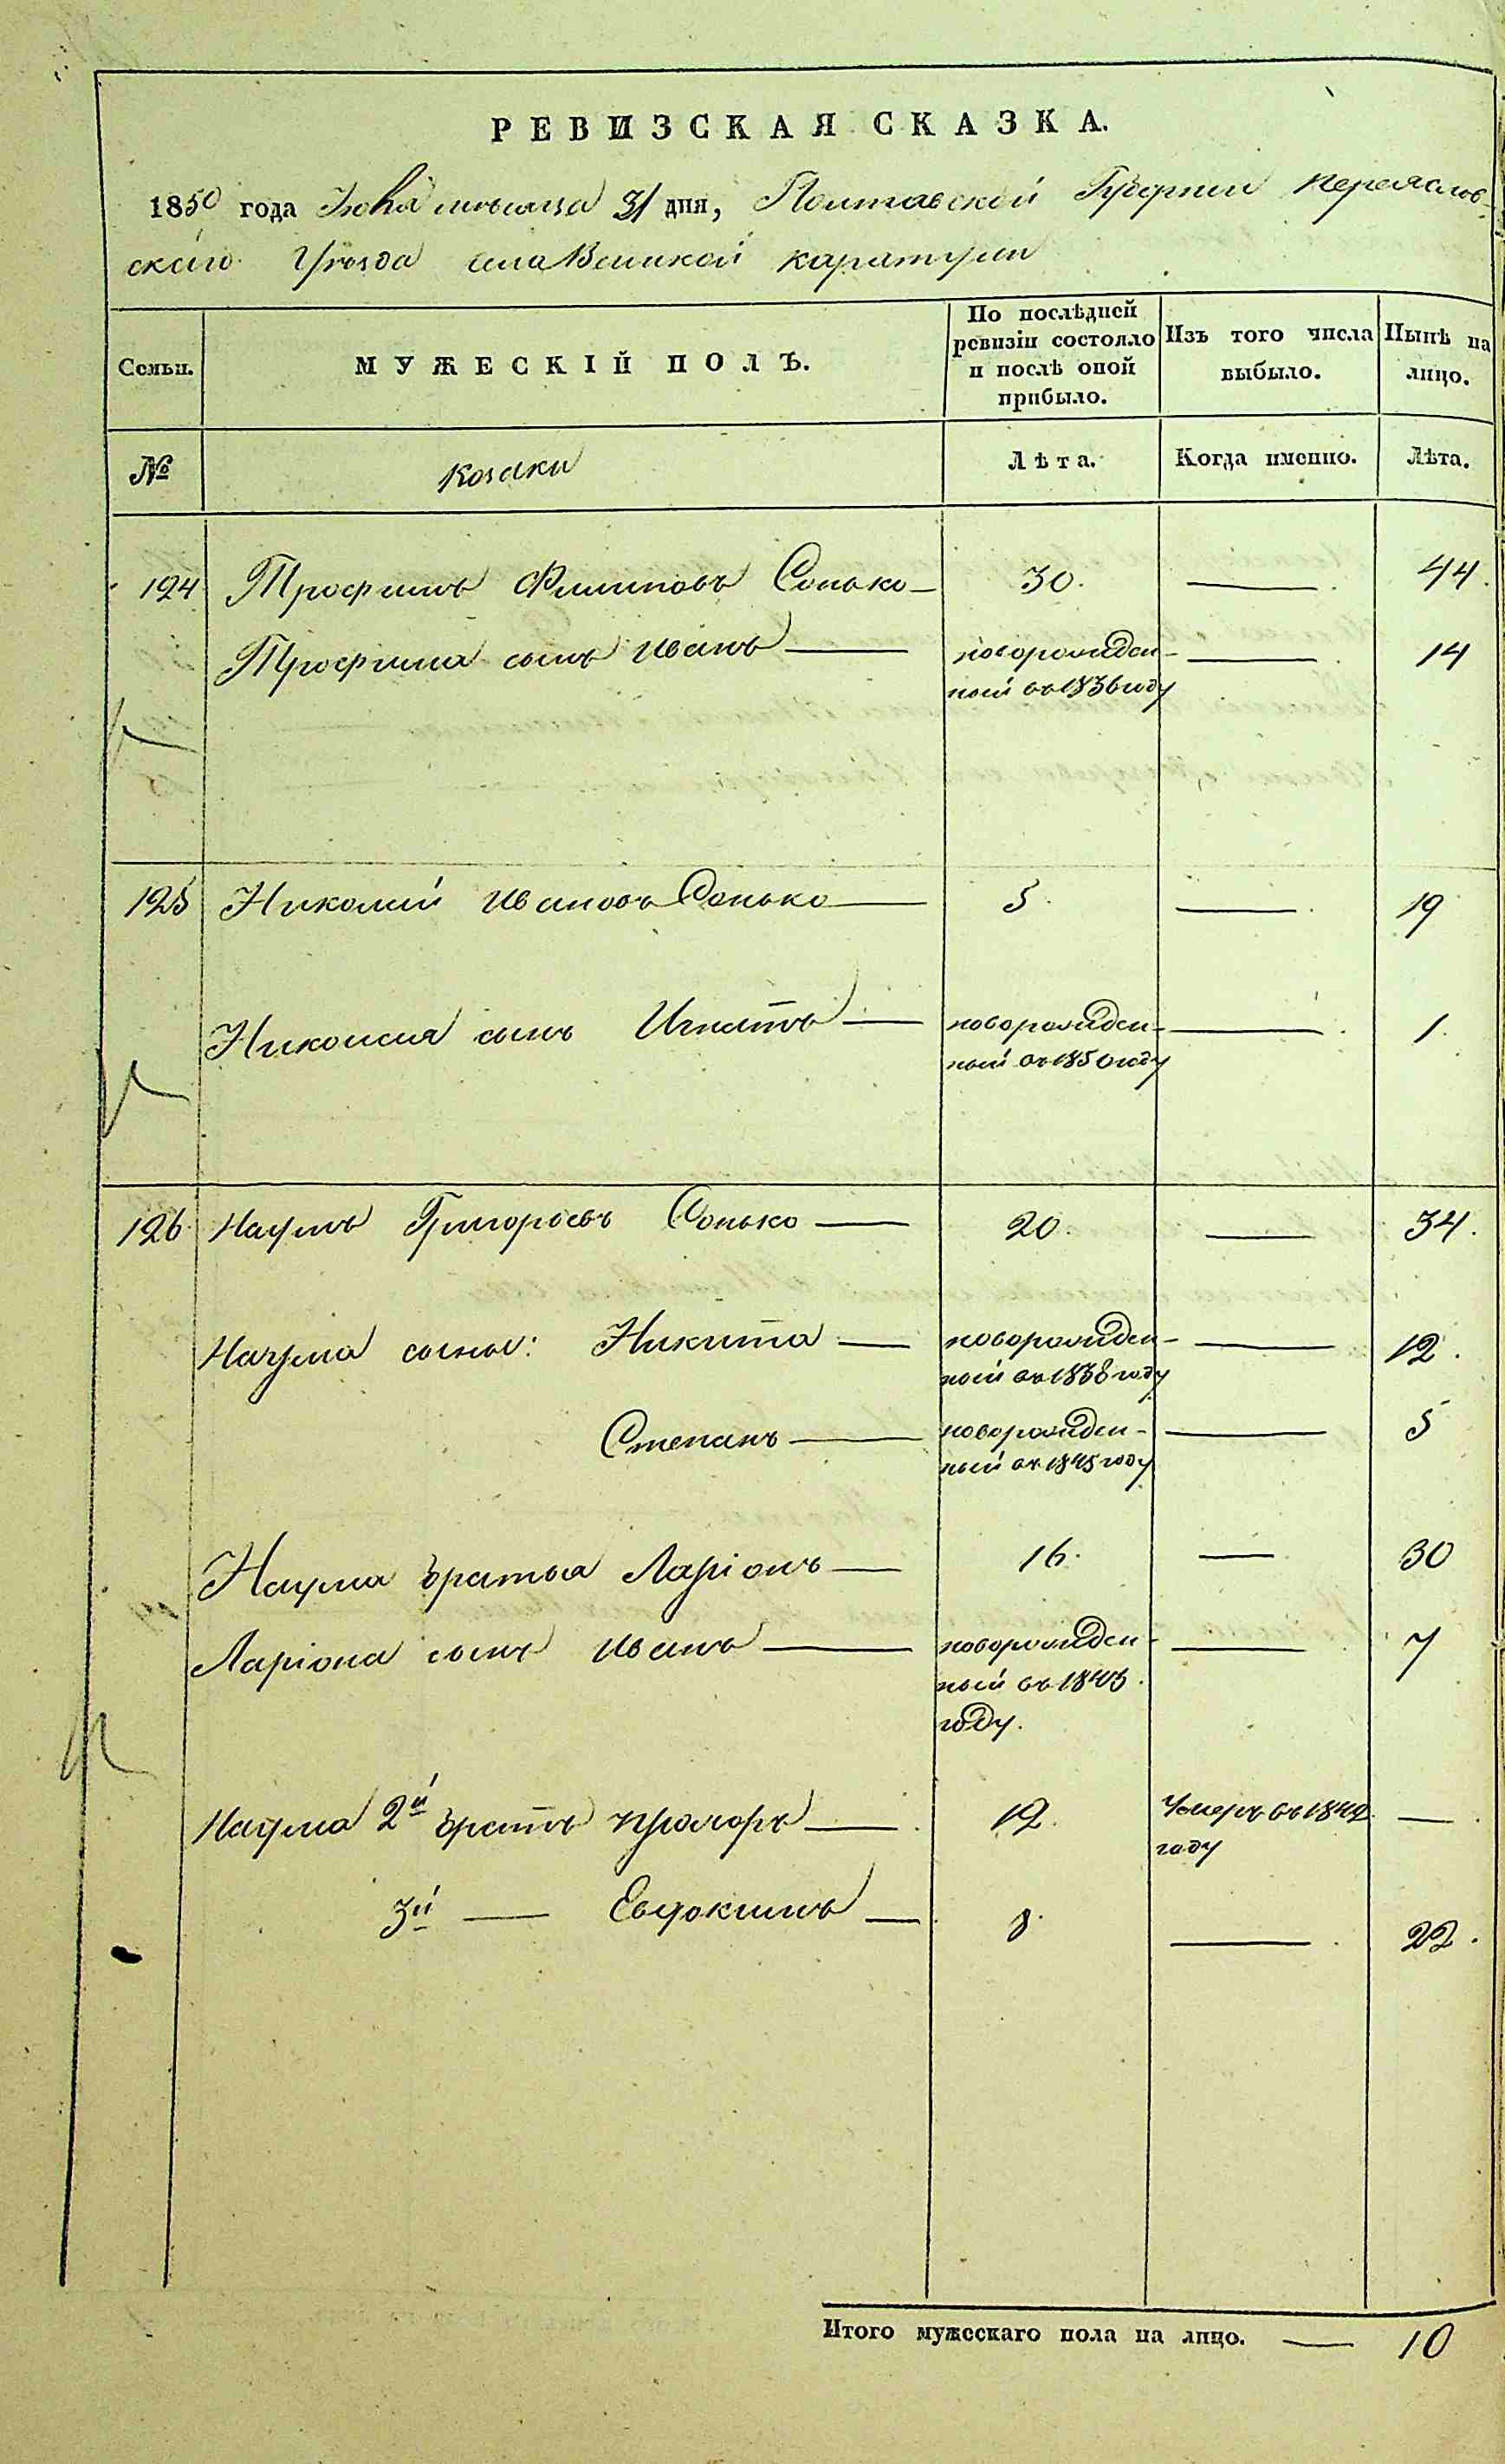 РЕВИЗСКАЯ СКАЗКА.
1850 года мѣсяца 31 дня, Полтавской Губерніи Переяслов-
скаго Уѣзда села Великой каратули
Семьи.
МУЖЕСКІЙ ПОЛЪ.
По послѣдней ревизіи состояло и послѣ оной прибыло.
Изъ того числа выбыло.
Нынѣ на лицо.
№ Козаки Лѣта. Когда именно. Лѣта.
124 Трофимъ Филиповъ Сонько — 30. — 44.
Трофима сынъ Иванъ — новорожден- — 14
ный въ 1836 году
125 Николай Ивановъ Сонько — 5. — 19
Николая сынъ Игнатъ — новорожден- — 1.
ный въ 1850 году
126 Наумъ Григорьевъ Сонько — 20. — 34.
Наума сыны: Никита — новорожден- — 12.
ный въ 1838 году
Степанъ — новорожден- — 5
ный въ 1845 году
Наума братья Ларіонъ — 16. — 30
Ларіона сынъ Иванъ — новорожден- — 7
ный въ 1843
году.
Наума 2й братъ прохоръ — 12. Умеръ въ 1842 —
году
3й — Евдокимъ — 8. — 22.
Итого мужескаго пола на лицо. — 10